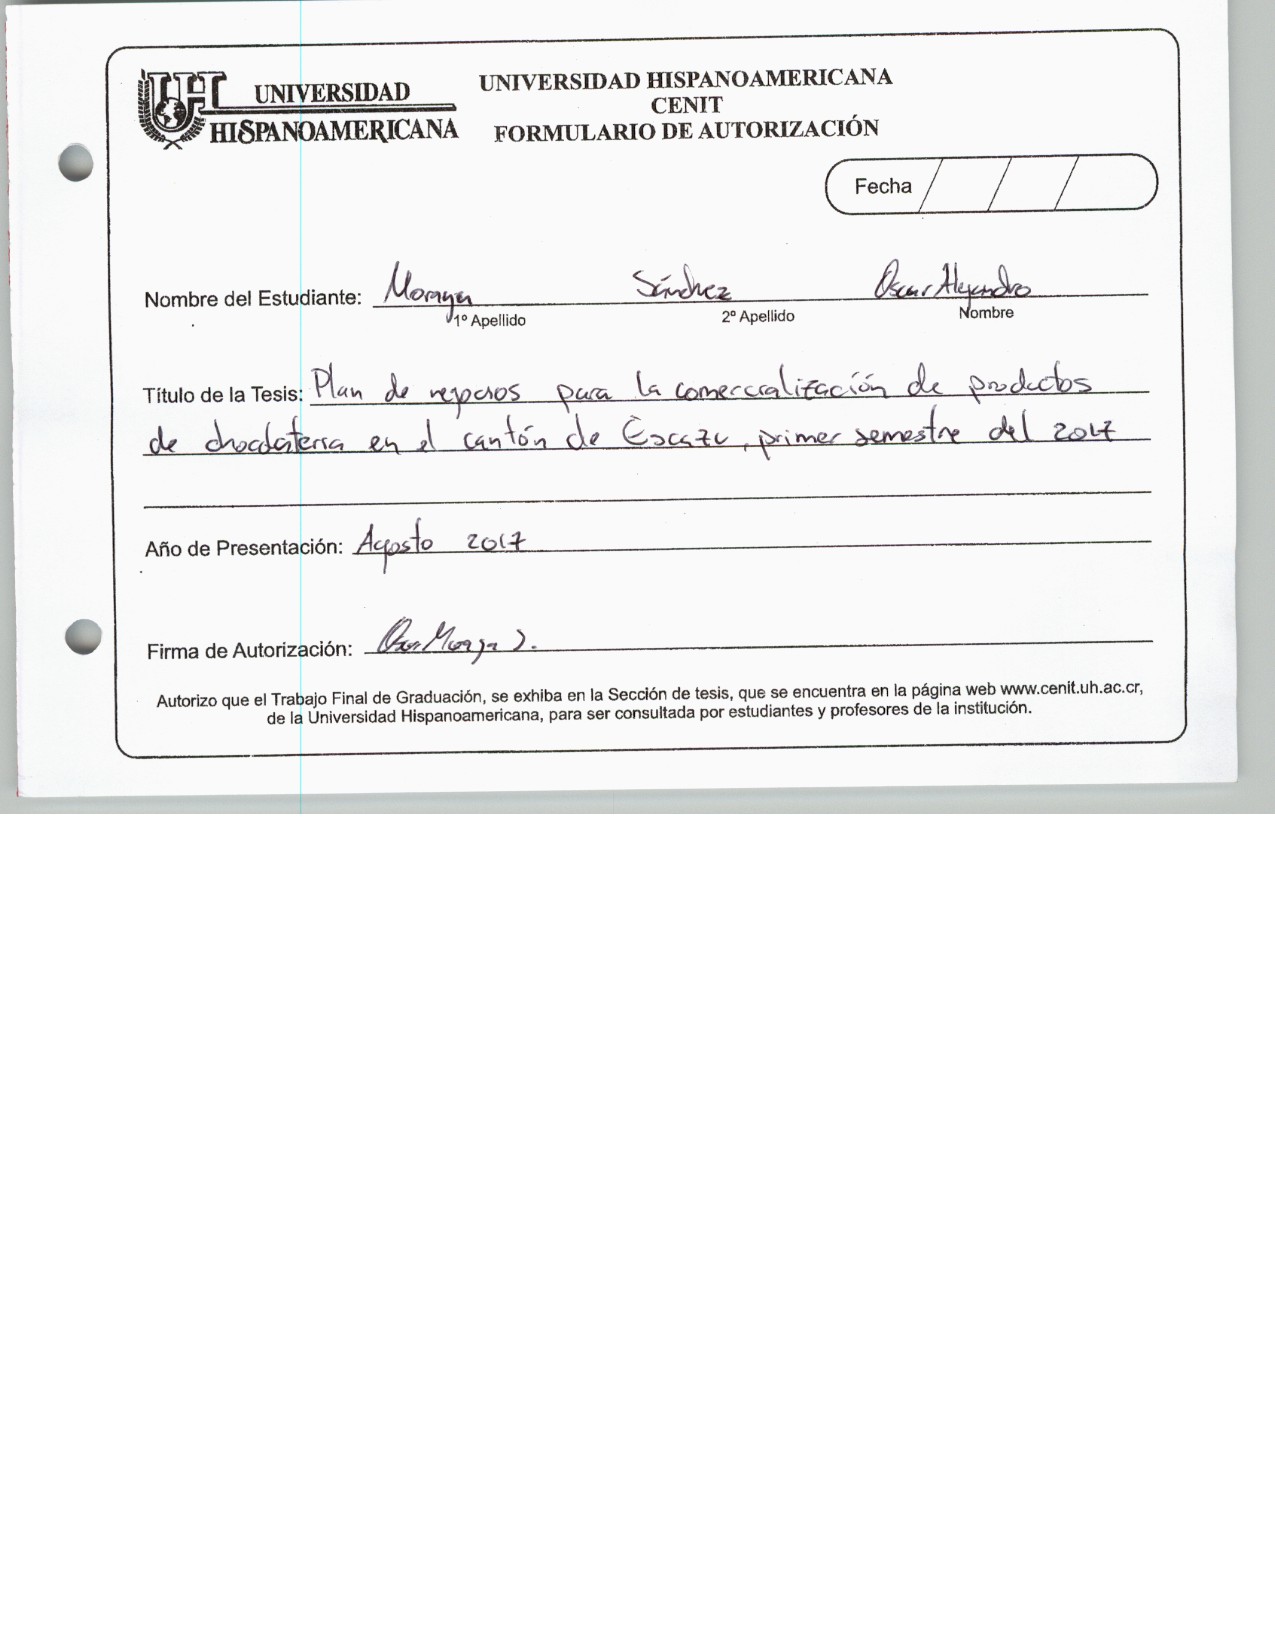 UNIVERSIDAD
HISPANOAMERICANA
UNIVERSIDAD HISPANOAMERICANA
CENIT
FORMULARIO DE AUTORIZACIÓN
Fecha
Nombre del Estudiante: Moraga Sánchez Oscar Alejandro
1º Apellido 2º Apellido Nombre
Título de la Tesis: Plan de negocios para la comercialización de productos
de chocolatería en el cantón de Escazu, primer semestre del 2017
Año de Presentación: Agosto 2017
Firma de Autorización: Oscar Moraga S.
Autorizo que el Trabajo Final de Graduación, se exhiba en la Sección de tesis, que se encuentra en la página web www.cenit.uh.ac.cr,
de la Universidad Hispanoamericana, para ser consultada por estudiantes y profesores de la institución.